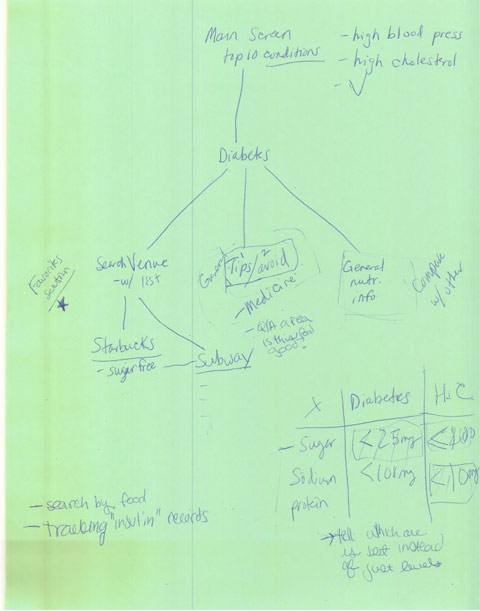 Main Screen
top 10 conditions
- high blood press
- high cholesterol
-
Diabetes
Favorites
section
Search Venue
- w/ list
General
Tips/avoid
1 2
- Medicare
- Q/A area
is this food
good?
General
nutr.
info.
Compare
w/ other
Starbucks
- sugar free
Subway
X Diabetes
- Sugar <25mg
Sodium <10mg
protein
- search by food
- tracking "insulin" records
→ tell which are
is best instead
of just levels